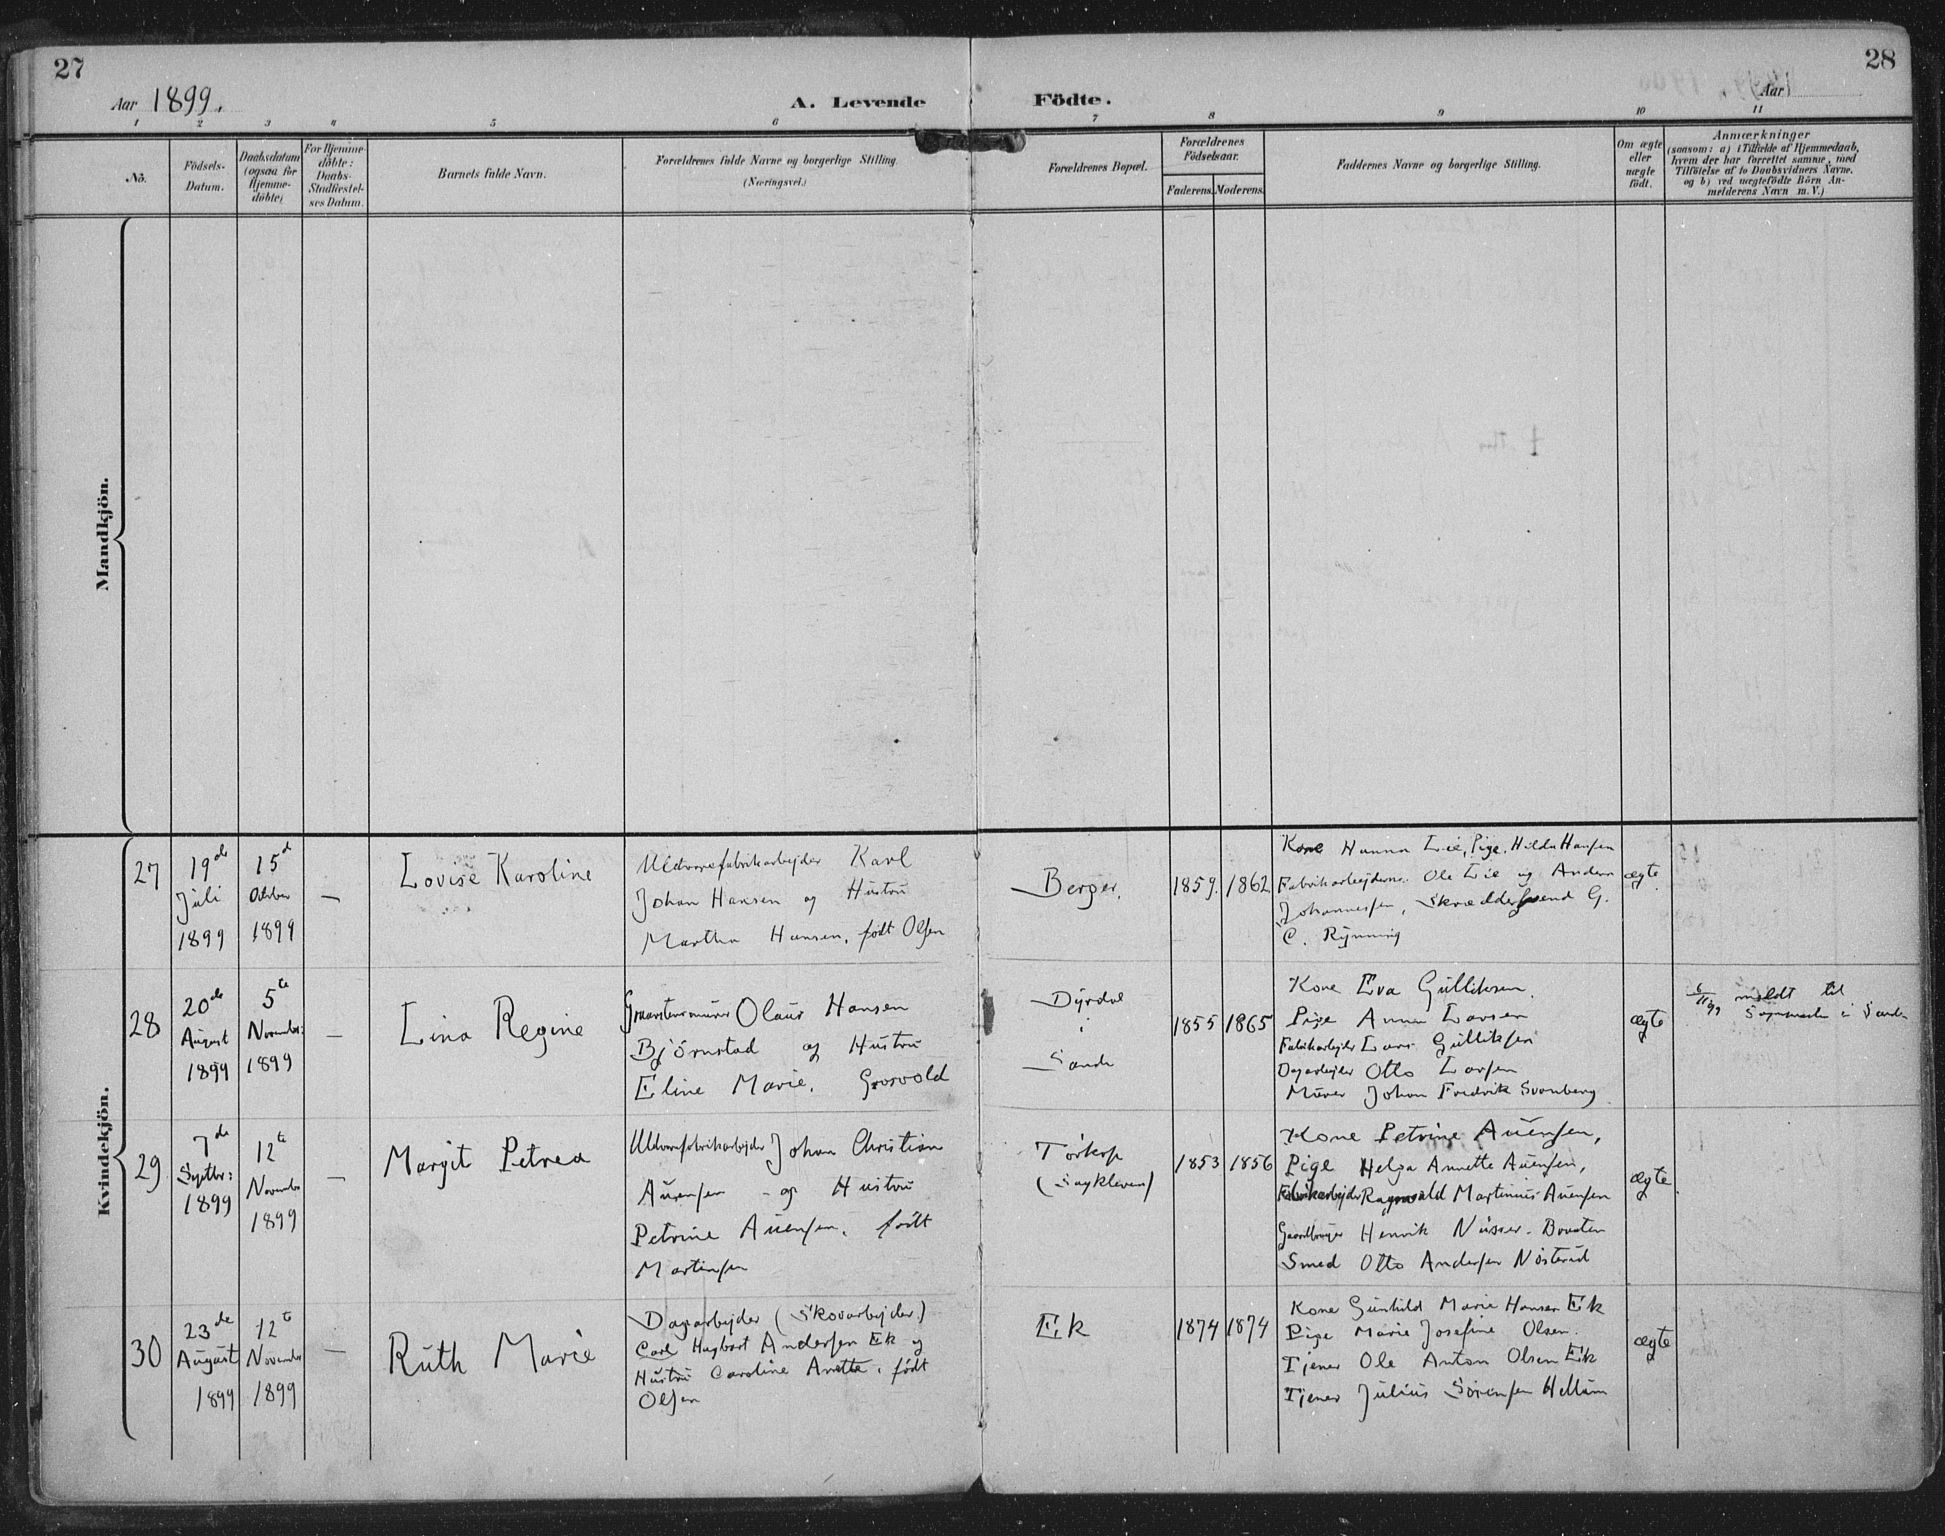 27
28
Aar 1899.
A. Levende Födte.
Aar
1 2 3 4 5 6 7 8 9 10 11
No.
Födsels-
Datum.
Daabsdatum
(ogsaa for
Hjemme-
döbte)
For Hjemme-
döbte:
Daabs-
Stadfæstel-
ses Datum.
Barnets fulde Navn.
Forældrenes fulde Navne og borgerlige Stilling.
(Næringsvei.)
Forældrenes Bopæl.
Forældrenes
Födselsaar.
Faderens.
Moderens.
Faddernes Navne og borgerlige Stilling.
Om ægte
eller
uægte
födt.
Anmærkninger
(saasom: a) i Tilfælde af Hjemmedaab,
hvem der har forrettet samme, med
Tilföielse af to Daabsvidners Navne,
og b) ved uægtefödte Börn An-
melderens Navn m. V.)
Mandkjön.
Kvindekjön.
27
19de
Juli
1899
15d
October
1899
—
Lovise Karoline
Uldvarefabrikarbejder Karl
Johan Hansen og Hustru
Martha Hansen, født Olsen
Berger.
1859.
1862
Kone Hanna Lie, Pige Hilda Hansen
Fabrikarbejderne Ole Lie og Anders
Johannesen, Skrædersvend G.
C. Rynning
ægte
28
20de
August
1899
5te
November
1899
—
Lina Regine
Graastensmurer Olaus Hansen
Bjørnstad og Hustru
Eline Marie, Grosvold
Dyrdal
i
Sande
1855
1865
Kone Eva Gulliksen.
Pige Anna Larsen
Fabrikarbejder Lars Gulliksen
Dagarbejder Otto Larsen
Murer Johan Fredrik Svanberg
ægte
6/11 99 meldt til
Sognepresten i Sande
29
7de
Septbr:
1899
12te
November
1899
—
Margit Petrea
Uldvarefabrikarbejder Johan Christian
Auensen og Hustru
Petrine Auensen, født
Martinsen
Tørkop
(Sagkleven)
1853
1856
Kone Petrine Auensen,
Pige Helga Annette Auensen,
Fabrikarbejder Ragnvald Martinius Auensen
Gaardbruger Henrik Braaten
Smed Otto Andersen Nøsterud
ægte
30
23de
August
1899
12te
November
1899
—
Ruth Marie
Dagarbejder (Skovarbejder)
Carl Hagbart Andersen Ek og
Hustru Caroline Anette, født
Olsen
Ek
1874
1874
Kone Gunhild Marie Hansen Ek
Pige Marie Josefine Olsen.
Tjener Ole Anton Olsen Ek
Tjener Julius Sörensen Hellum
ægte